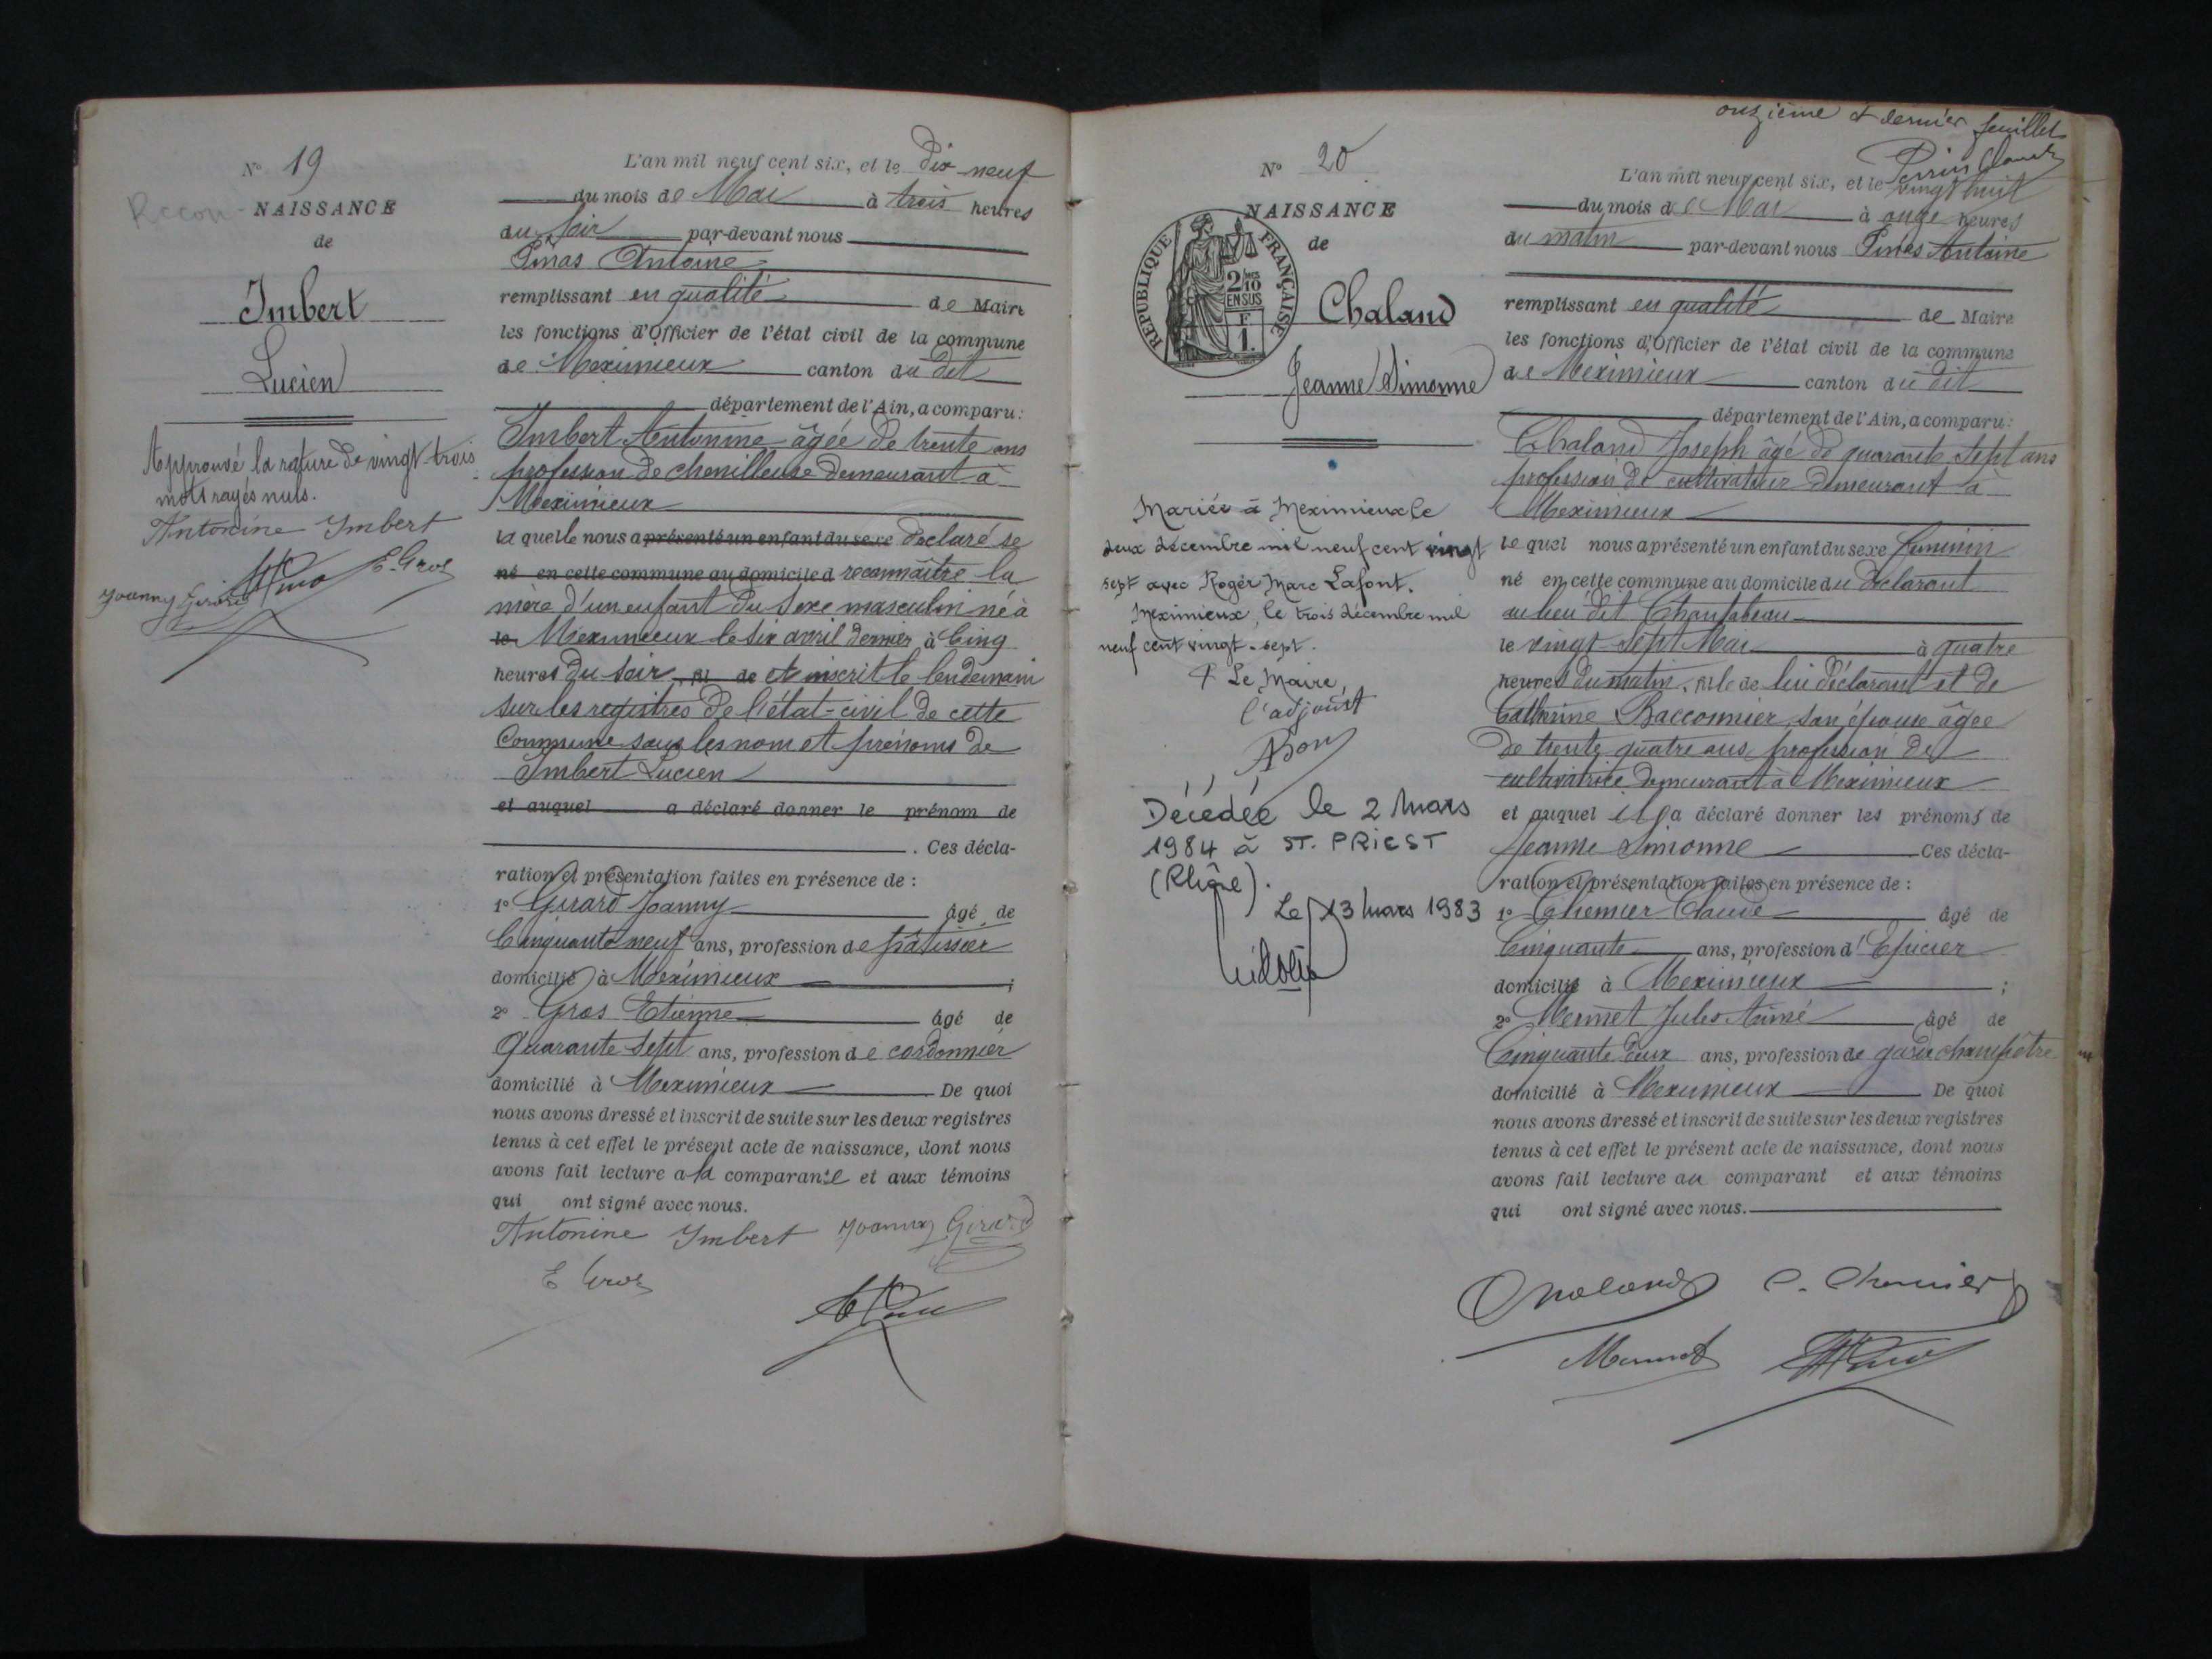 N° 19
Recon-NAISSANCE
de
Imbert
Lucien
Approuvé la rature de vingt trois
mots rayés nuls.
Antonine Imbert
E. Gros
Joanny Girard
L'an mil neuf cent six, et le Dix-neuf
du mois de Mai à trois heures
du soir par-devant nous
Pinas Antoine
remplissant en qualité de Maire
les fonctions d'Officier de l'état civil de la commune
de Meximieux canton du dit
département de l'Ain, a comparu :
Imbert Antonine âgée de trente ans
profession de chenilleuse demeurant à
Meximieux
laquelle nous a présenté un enfant du sexe déclaré se
né en cette commune au domicile d reconnaître la
mère d'un enfant du sexe masculin né à
le Meximieux le six avril dernier à Cinq
heures du soir, fil de et inscrit le lendemain
sur les registres de l'état-civil de cette
Commune sous les nom et prénoms de
Imbert Lucien
et auquel a déclaré donner le prénom de
. Ces décla-
ration et présentation faites en présence de :
1° Girard Joanny âgé de
Cinquante neuf ans, profession de pâtissier
domicilié à Meximieux ;
2° Gros Etienne âgé de
Quarante sept ans, profession de cordonnier
domicilié à Meximieux De quoi
nous avons dressé et inscrit de suite sur les deux registres
tenus à cet effet le présent acte de naissance, dont nous
avons fait lecture à la comparante et aux témoins
qui ont signé avec nous.
Antonine Imbert Joanny Girard
E Gros
onzième et dernier feuillet
N° 20
NAISSANCE
de
RÉPUBLIQUE FRANÇAISE
2/10
EN SUS
F
1.
Chaland
Jeanne Simonne
Mariée à Meximieux le
deux décembre mil neuf cent vingt
sept avec Roger Marc Lafont.
Meximieux, le trois décembre mil
neuf cent vingt-sept.
P. Le Maire,
l'adjoint
Décédée le 2 Mars
1984 à ST. PRIEST
(Rhône).
Le 13 Mars 1983
L'an mil neuf cent six, et le vingt huit
du mois de Mai à onze heures
du matin par-devant nous Pinas Antoine
remplissant en qualité de Maire
les fonctions d'Officier de l'état civil de la commune
de Meximieux canton du dit
département de l'Ain, a comparu :
Chaland Joseph âgé de quarante sept ans
profession de cultivateur demeurant à
Meximieux
lequel nous a présenté un enfant du sexe féminin
né en cette commune au domicile du déclarant
au lieu dit Chantabeau
le vingt-sept Mai à quatre
heures du matin, fille de lui déclarant et de
Catherine Bacconnier son épouse âgée
de trente quatre ans, profession de
cultivatrice demeurant à Meximieux
et auquel il a déclaré donner les prénoms de
Jeanne Simonne Ces décla-
ration et présentation faites en présence de :
1° Chemier Claude âgé de
Cinquante ans, profession d'Epicier
domicilié à Meximieux ;
2° Mermet Jules Aimé âgé de
Cinquante deux ans, profession de garde champêtre
domicilié à Meximieux De quoi
nous avons dressé et inscrit de suite sur les deux registres
tenus à cet effet le présent acte de naissance, dont nous
avons fait lecture au comparant et aux témoins
qui ont signé avec nous.
Chaland C. Chemier
Mermet